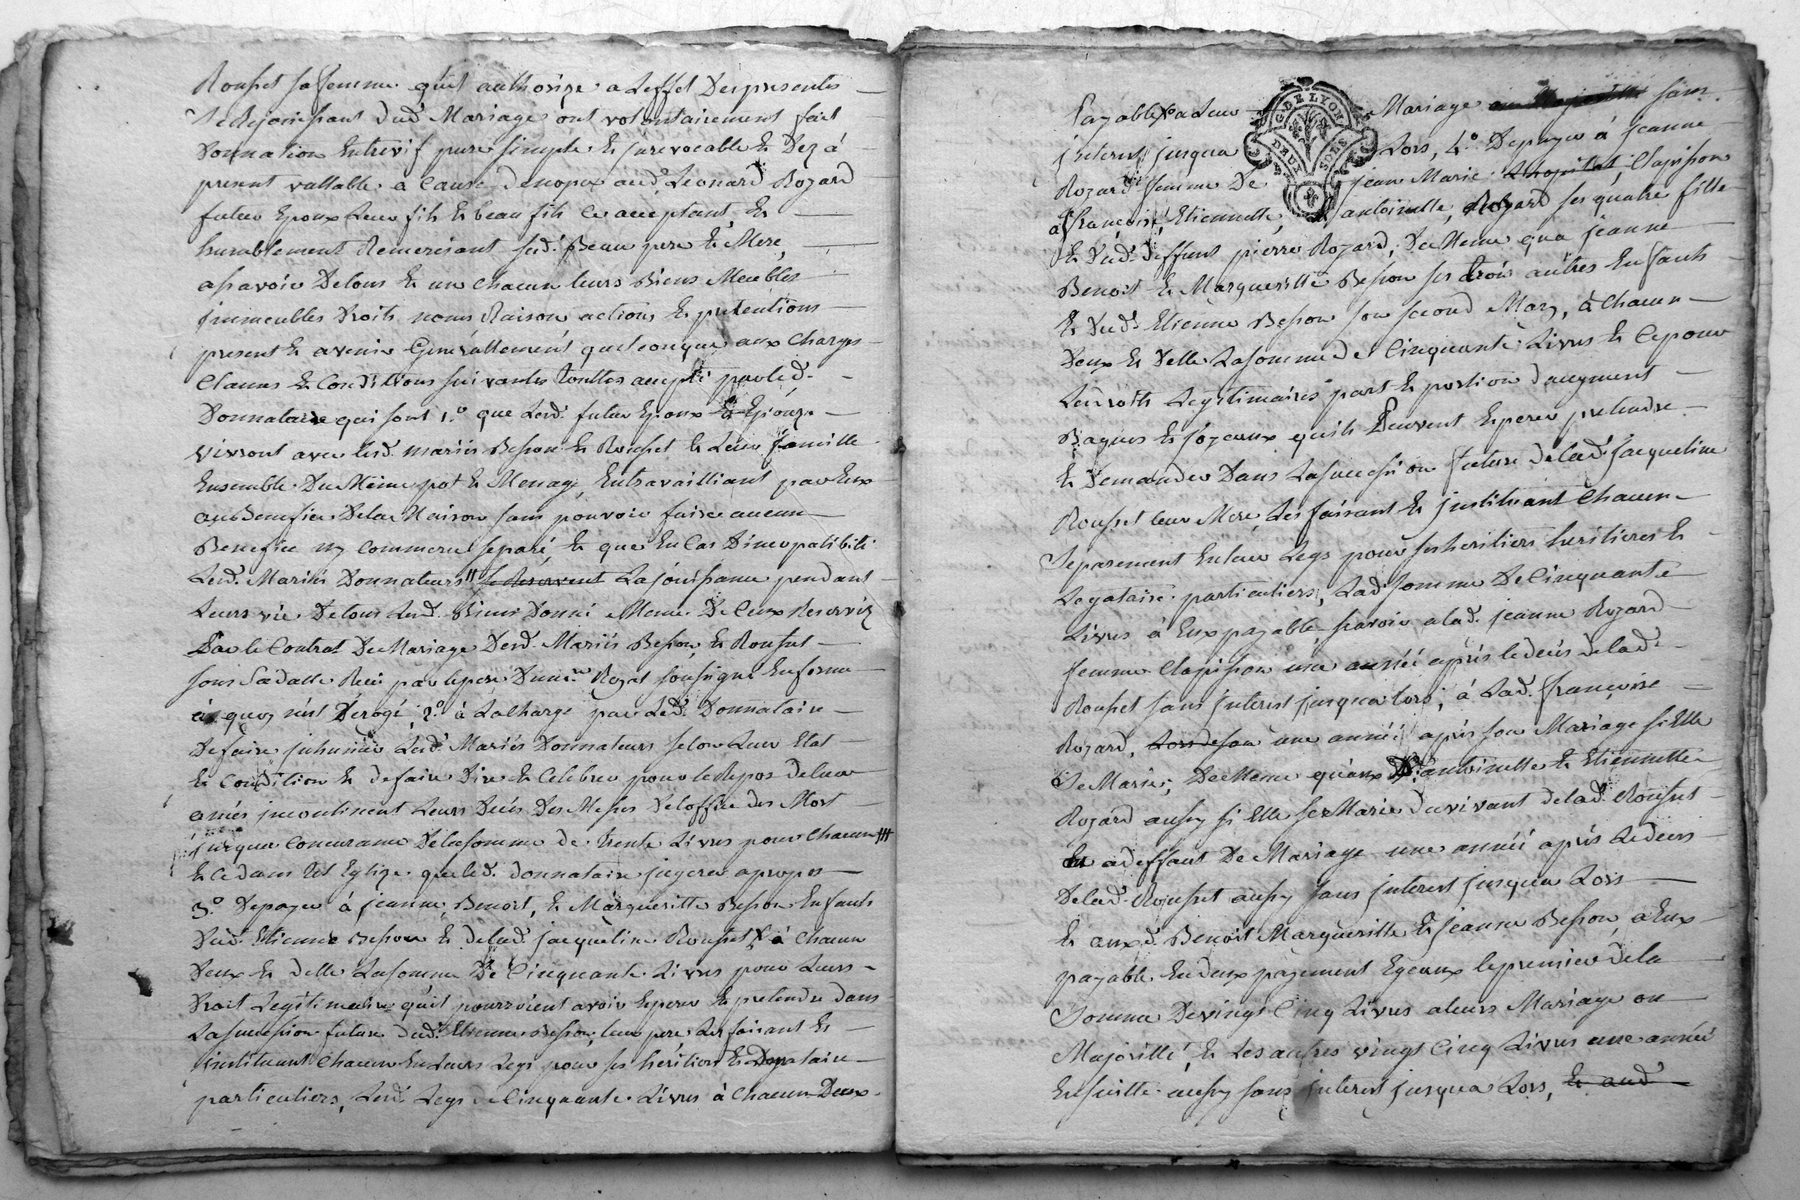 Rouset sa femme quil authorize a Leffet Des presentes
Se Rejouissant Dud. Mariage ont volontairement fait
Donnation Entrevif pure simple Et jrrevocable Et Dez a
present vallable a Cause de nopce aud. Leonard Rozard
futur Epoux Leur fils Et beau fils ce acceptant, Et
humblement Remerciant sesd. Beau pere Et Mere,
asavoir De tous Et un chacun leurs Biens Meubles
jmmeubles Droits noms Raisons actions Et pretentions
present Et avenir Generallement quelconque aux Charges
Clauses Et Conditions suivantes touttes accepté par led.
Donnataire qui sont 1.º que Lesd. futur Epoux Et Epouze
vivront avec lesd. mariés Besson Et Rouset Et Leur famille
Ensemble Du Même pot Et Menage, En travailliant par Eux
au Benefice De la Maison sans pouvoir faire aucun
Benefice ny Commerce separé, Et que En Cas Dincopatibilité
Lesd. Mariés Donnateurs se Reservent La jouissance pendant
Leurs vie De tous Lesd. Biens Donné Meme De Ceux Reservéz
Par le Contrat De Mariage Desd. Mariés Besson Et Rouset
sous Sa datte Recu par le pere Du Royet soussigné En forme
a quoy nest Derogé; 2.º à La Charge par Led. Donnataire
De faire jnhumer Lesd. Mariés Donnateurs selon Leur Etat
Et Condition Et de faire Dire Et Celebrer pour le Repos de leur
ames jncontinent Leurs Decés Des Messes De loffice des Mort
jusqua Concurance De la somme de trente Livres pour Chacun
Et ce dans tel Eglize que led. donnataire jugera a propos
3.º De payer à jeanne, Benoit, Et Margueritte Besson Enfants
Dud. Etienne Besson Et de lad. jacqueline Rouset à Chacun
Deux Et delle La somme De Cinquante Livres pour Leurs
Droit Legitimaire quil pourroient avoir Esperer Et pretendre dans
La succession future dud. Etienne Besson, leur pere Les faisant Et
jnstituant Chacun En Leurs Legs pour ses heritiers Et Legataire
particuliers, Lesd. Legs de Cinquante Livres à Chacun Deux
Payable a Leur Mariage sans
G. DE LYON
DEUX SOLS
jnterest jusqua Lors, 4.º De payer à jeanne
Rozard femme De jean Marie Clapisson
à françoise, Etiennette, antoinette, Rozard ses quatre fille
Et Dud. deffunt pierre Rozard, De Meme qua jeanne
Benoit Et Margueritte Besson ses trois autres Enfants
Et Dud. Etienne Besson son second Mary, à Chacun
Deux Et Delle La somme de Cinquante Livres Et Ce pour
Leur roits Legitimaires part Et portion daugment
Bagues Et joyeaux quils Peuvent Esperer pretendre
Et Demander Dans La succession future de lad. jacqueline
Rouset leur Mere, Les faisant Et jnstituant Chacun
Separement En leur Legs pour ses heritiers heritieres Et
Legataire particuliers, Lad. somme De Cinquante
Livres à Eux payable, scavoir a lad. jeanne Rozard
femme Clapisson une année aprés le decés de lad.
Rouset sans jnterest jusqua lors; à Lad. françoise
Rozard, Lors de son une année aprés son Mariage si Elle
Se Marie; De Meme quaux D. antoinette Et Etiennette
Rozard aussy si Elle se Marie du vivant de lad. Rouset
Et a deffaut De Mariage une année aprés Le deces
De lad. Rouset aussy sans jnterest jusqua Lors
Et auxd. Benoit Margueritte Et jeanne Besson, a Eux
payable En deux payement Egeaux le premier de la
Somme De vingt Cinq Livres a leurs Mariage ou
Majorité, Et Les autres vingt Cinq Livres une année
Ensuitte aussy sans jnterest jusqua Lors, Et aud.